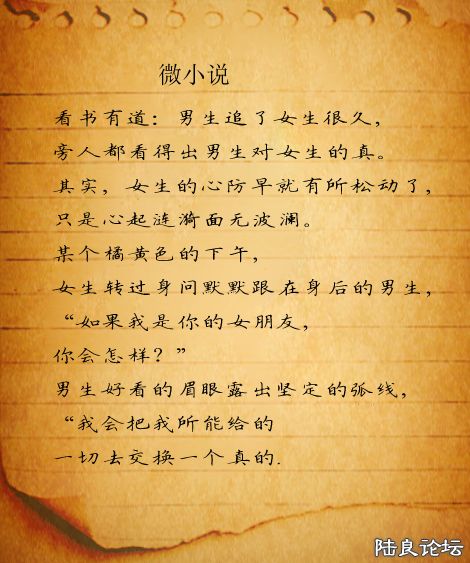 微小说
看书有道：男生追了女生很久，
旁人都看得出男生对女生的真。
其实，女生的心防早就有所松动了，
只是心起涟漪面无波澜。
某个橘黄色的下午，
女生转过身问默默跟在身后的男生，
“如果我是你的女朋友，
你会怎样？”
男生好看的眉眼露出坚定的弧线，
“我会把我所能给的
一切去交换一个真的.
陆良论坛